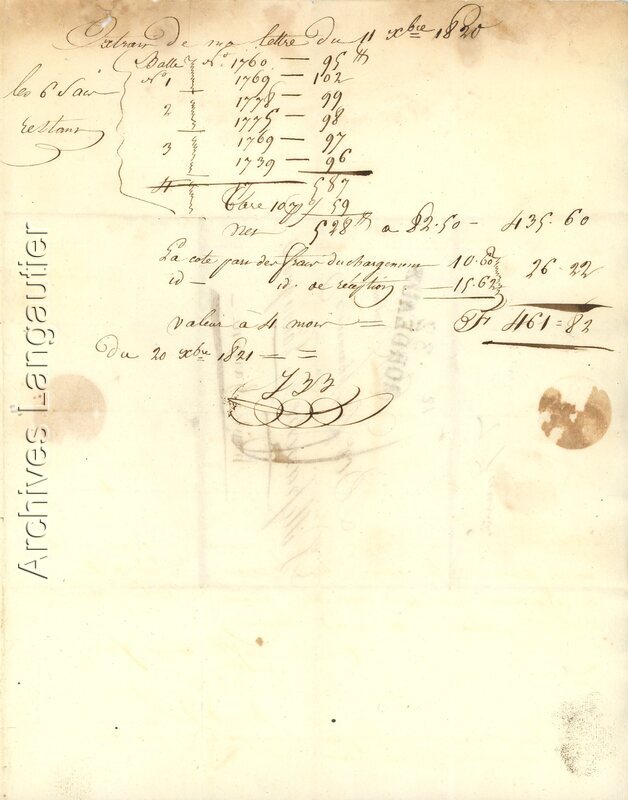 Extrait de ma lettre du 11 xbre 1820
les 6 Sacs restant
Balle N° 1760 — 95 lb
N° 1 1769 — 102
2 1778 — 99
1775 — 98
3 1769 — 97
1739 — 96
4 587
Tare 10 % 59
Net 528 lb a 82.50 — 435.60
La cote part des frais du chargement 10.60
id — id. de réception — 15.62 26.22
valeur à 4 mois = F 461=82
du 20 xbre 1821 — =
BORDEAUX
Archives Langautier